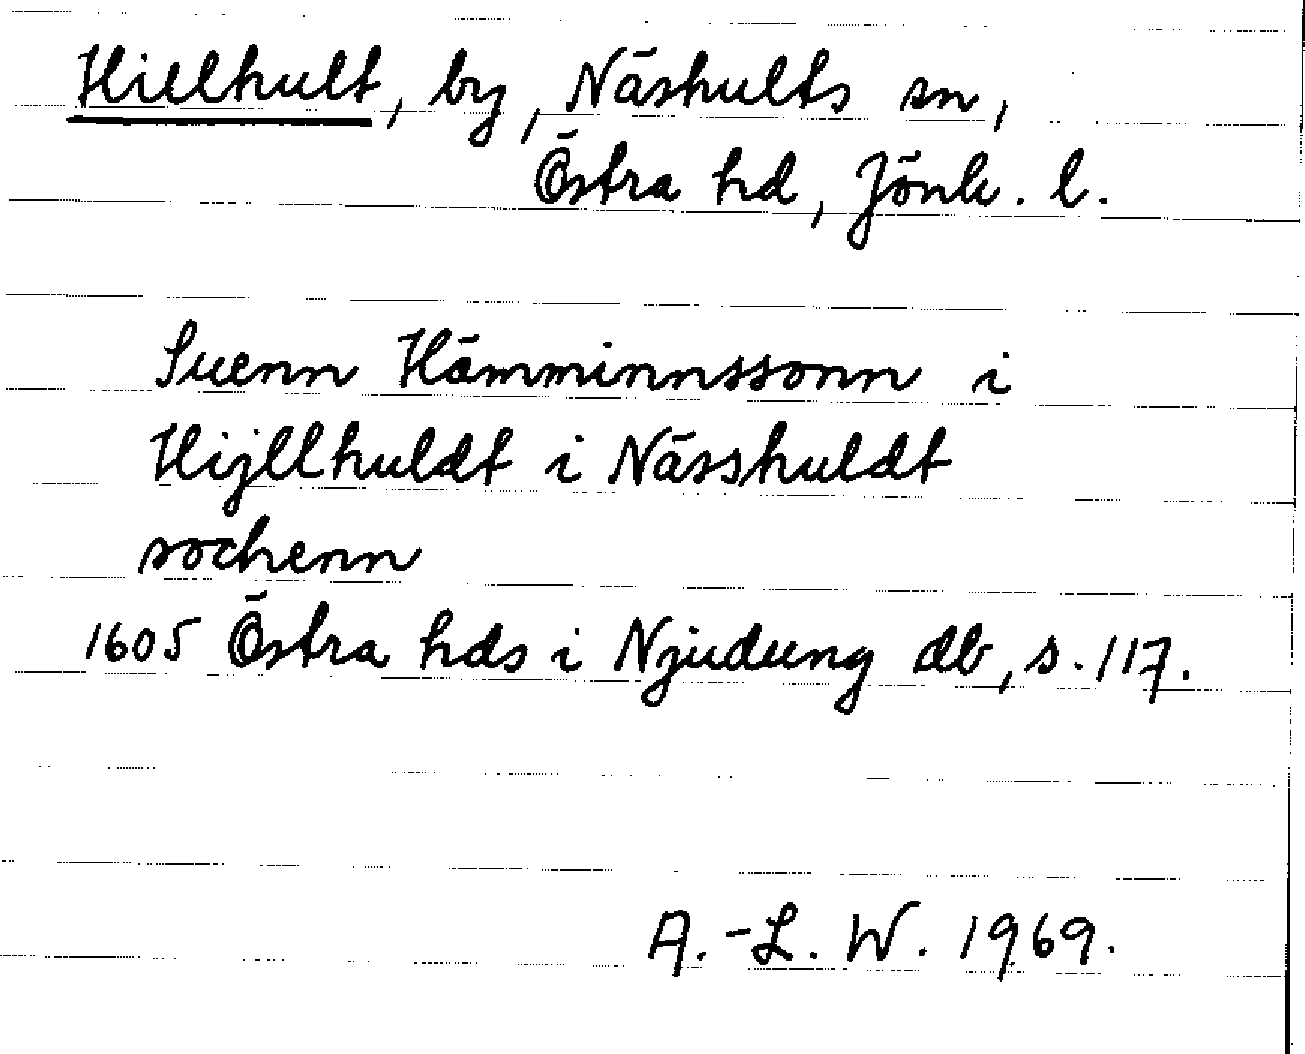 Hillhult, by, Näshults sn,
Östra hd, Jönk. l.
Suenn Hämminnssonn i
Hijllhuldt i Nässhuldt
sochenn
1605 Östra hds i Njudung db, s. 117.
A.-L. W. 1969.